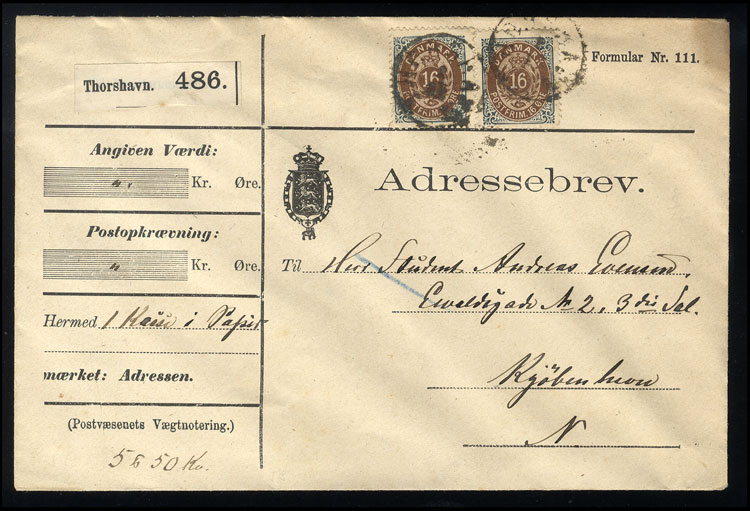 Thorshavn. 486.
DANMARK
16
POSTFRIM. 16 ØRE
DANMARK
16
POSTFRIM. 16 ØRE
Formular Nr. 111.
Angiven Værdi:
Kr. Øre.
Postopkrævning:
Kr. Øre.
Hermed 1 Kasse i Papir
mærket: Adressen.
(Postvæsenets Vægtnotering.)
Adressebrev.
Til Herr Student Andreas
Ewaldsgade No 2, 3die Sal.
Kjöbenhavn
N